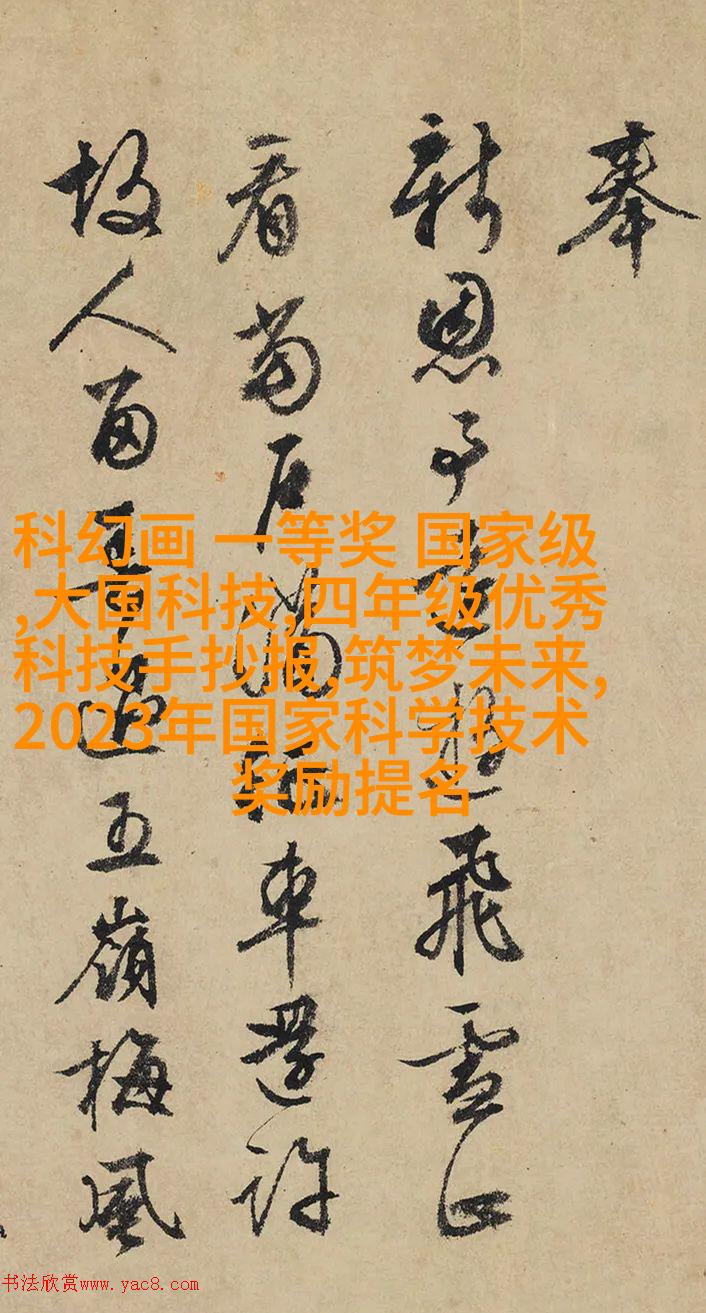 奉
新恩予飛雪正
看車還許
故人五嶺梅風
科幻画 一等奖 国家级
,大国科技,四年级优秀
科技手抄报,筑梦未来,
2023年国家科学技术
奖励提名
书法欣赏www.yac8.com